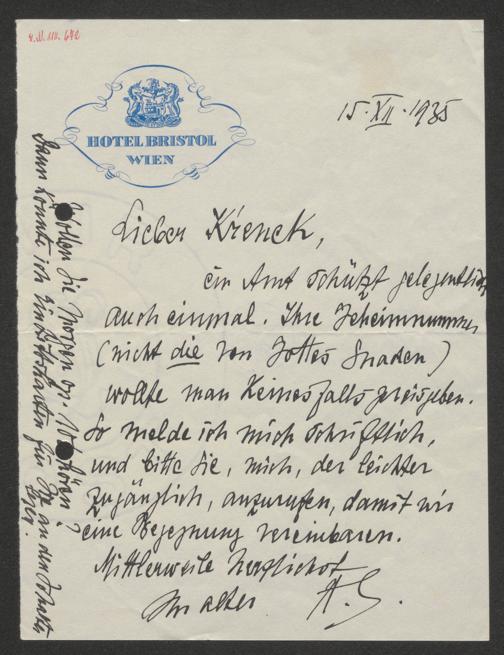 HOTEL BRISTOL
WIEN
15. XII. 1935
Lieber Křenek,
ein Amt schützt gelegentlich
auch einmal. Ihre Geheimnummer
(nicht die von Gottes Gnaden)
wollte man keinesfalls preisgeben.
So melde ich mich schriftlich,
und bitte Sie, mich, der leichter
zugänglich, anzurufen, damit wir
eine Begegnung vereinbaren.
Mittlerweile herzlichst
Ihr alter
A. S.
Wollen Sie morgen hören?
Dann könnte ich Eintrittskarten für Sie an den